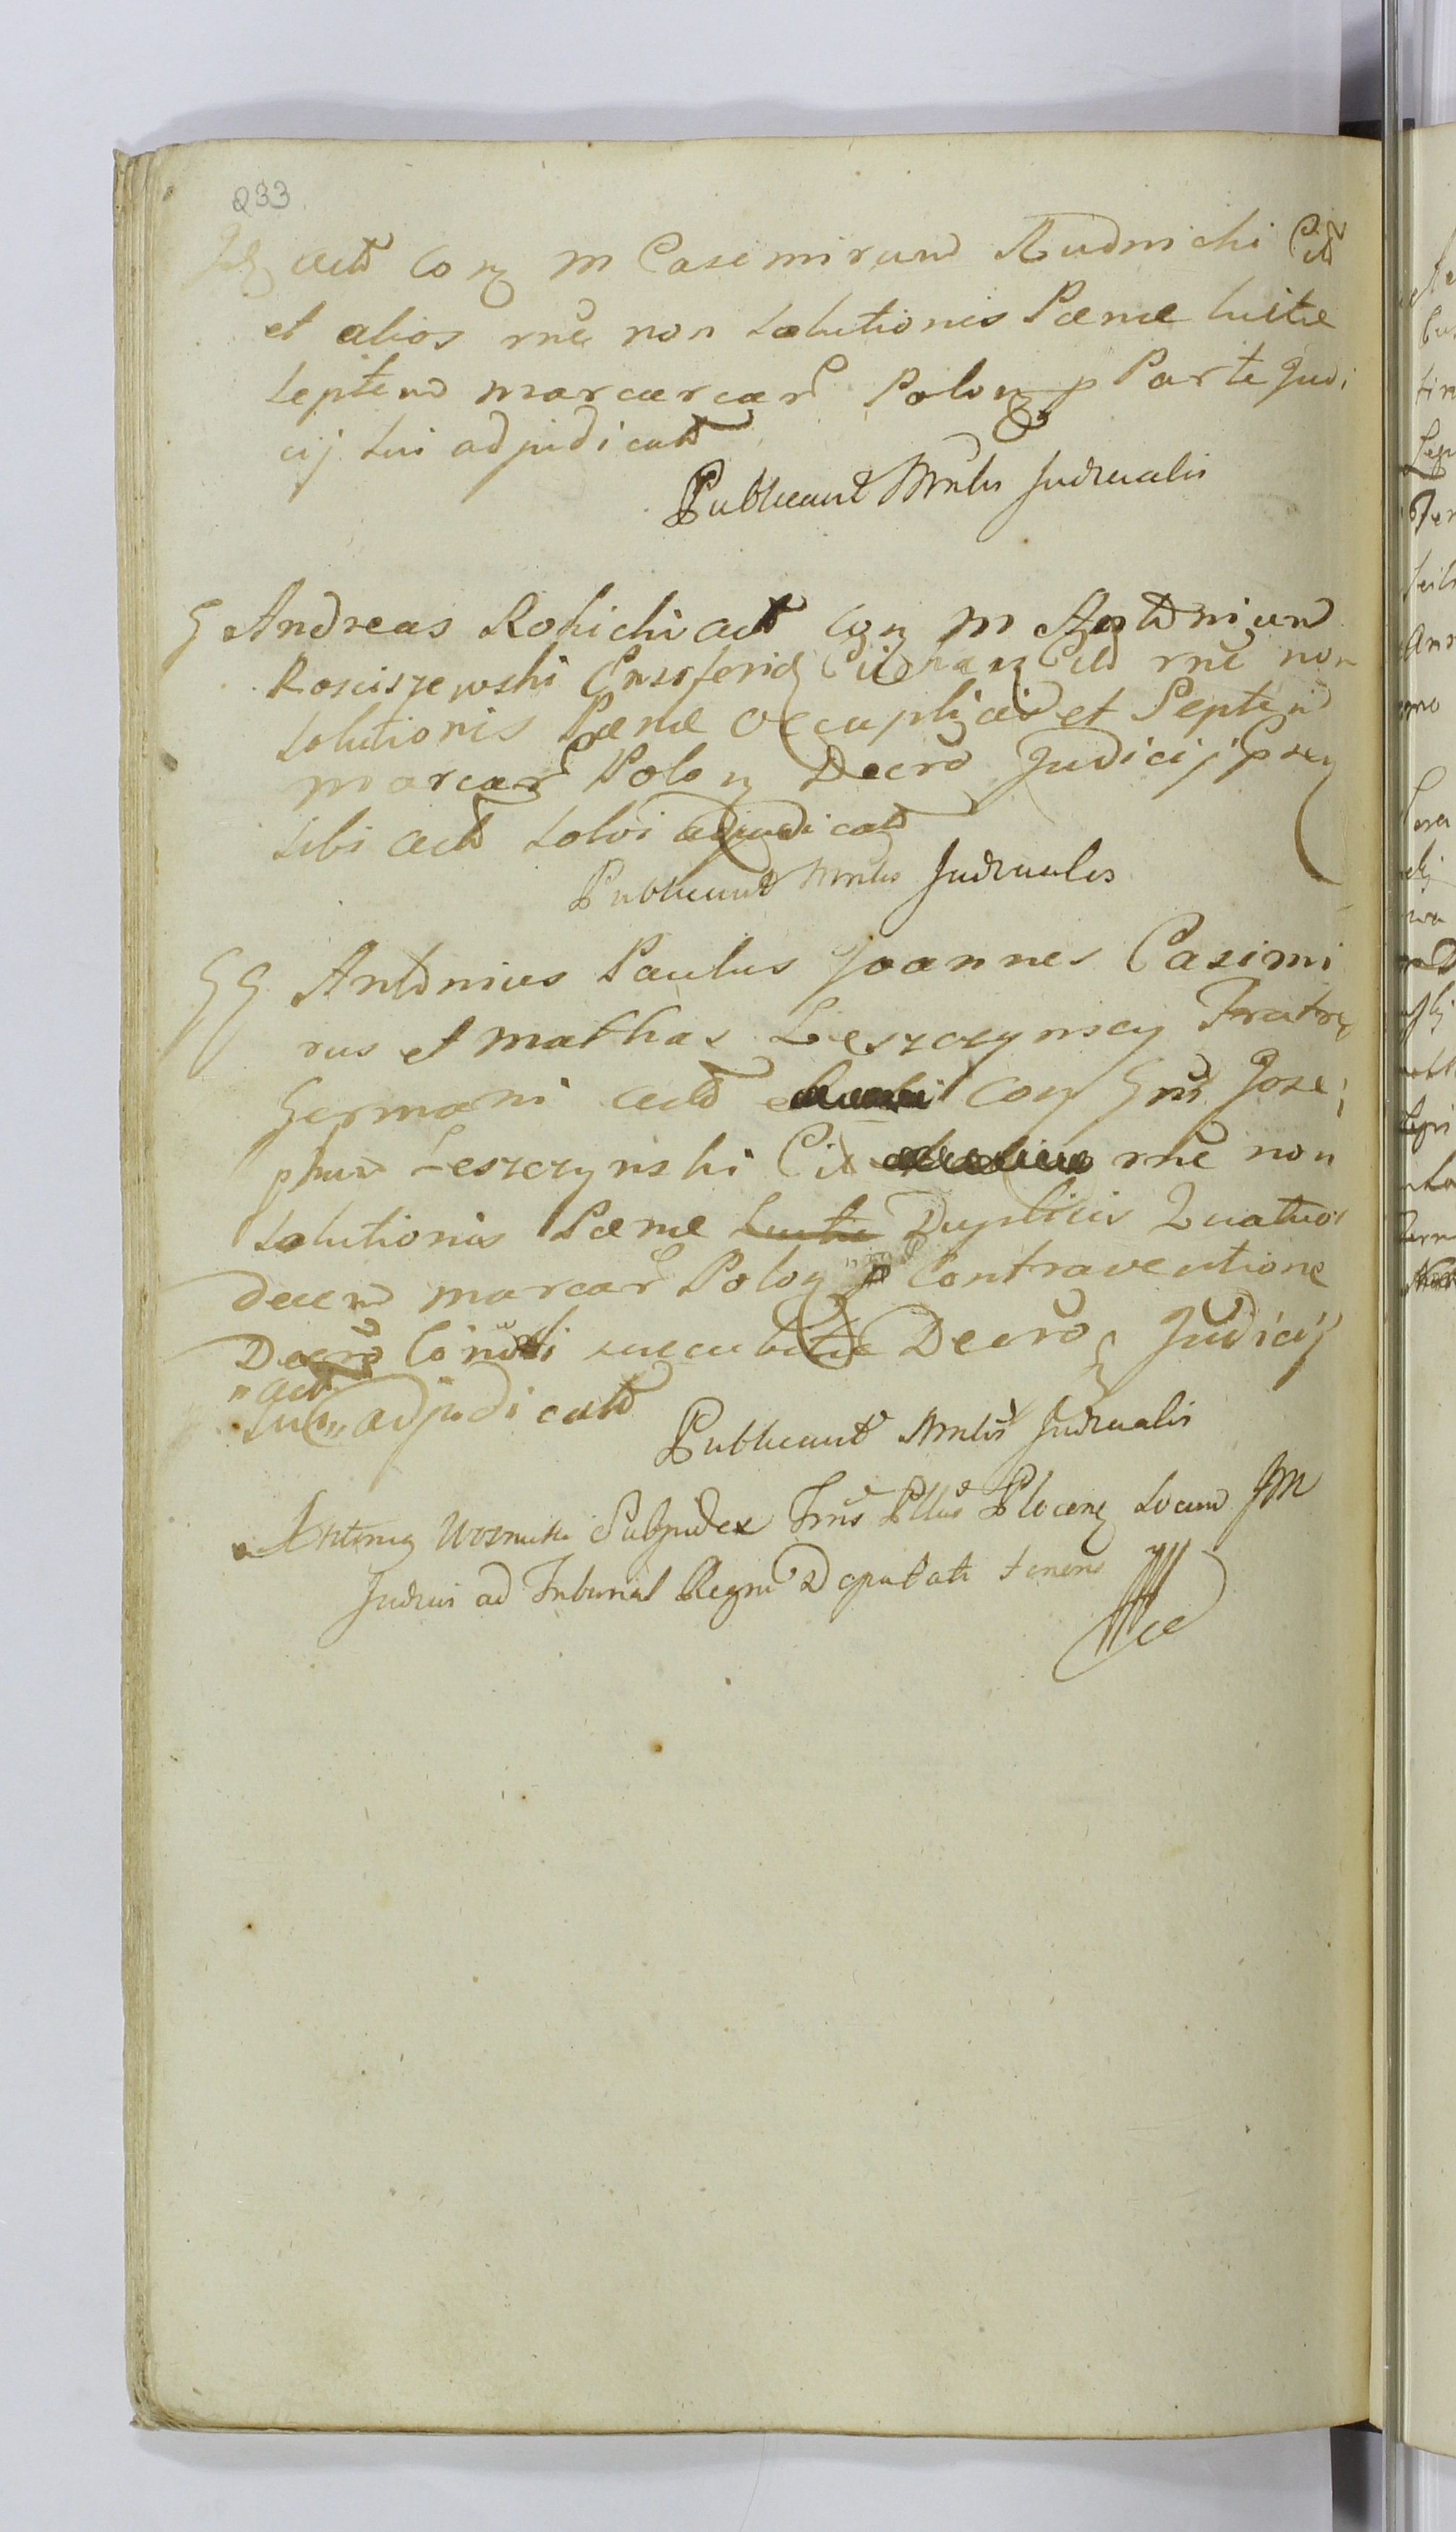 233
Idẽ actõ conz M Casimirum Rudnicki Citũ
et alios rñe non solutionis Pænæ luitæ
septem marcarcarũ Polonz p Parte Judi
cij sui adjudicatã
Publicavit Mnlis Judicialis
G Andreas Rokicki actõ conz M Antonium
Rosciszewski Ensiferũ Ciechanz Citũ rñe non
solutionis Pænæ occuplicaō et Septem
marcarũ Polonz Decrõ Judicij
sibi actõ solvi adjudicatã
Publicavit Mnlis Judicialis
GG Antonius Paulus Joannes Casimi
rus et Mathias Leszczynscy Fratres
Germani actõ conz Gnũ Jose;
phum Leszczynski Citũ rñe non
solutionis Pænæ luitæ Duplicis Quatuor
decem marcarũ Polonz p Contraventione
Decrõ Condi succubitæ Decro Judicij
sui " actõ " adjudicatã
Publicavit Mnlis Judicialis
Subjudex Trris Pllus Plocenz Locum JM
Judicis ad Tribunal Regni Deputati tenens